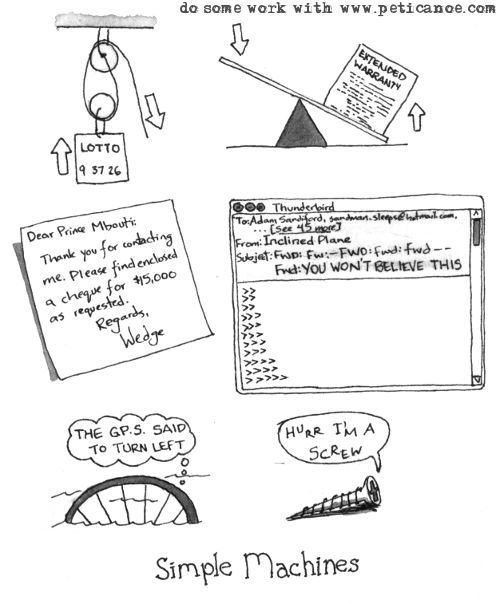 do some work with www.peticanoe.com
LOTTO
9 37 26
EXTENDED
WARRANTY
Dear Prince Mbouti:
Thank you for contacting
me. Please find enclosed
a cheque for $15,000
as requested.
Regards,
Wedge
Thunderbird
To: Adam Sandiford, sandman.sleeps@hotmail.com,
... [See 45 more]
From: Inclined Plane
Subject: FWD: Fw: -FWD: fwd: fwd--
Fwd: YOU WON'T BELIEVE THIS
>>
>>
>>
>>
>>
>>>
>>>
>>>>
>>>>
>>>>>
THE G.P.S. SAID
TO TURN LEFT
HURR I'M A
SCREW
Simple Machines